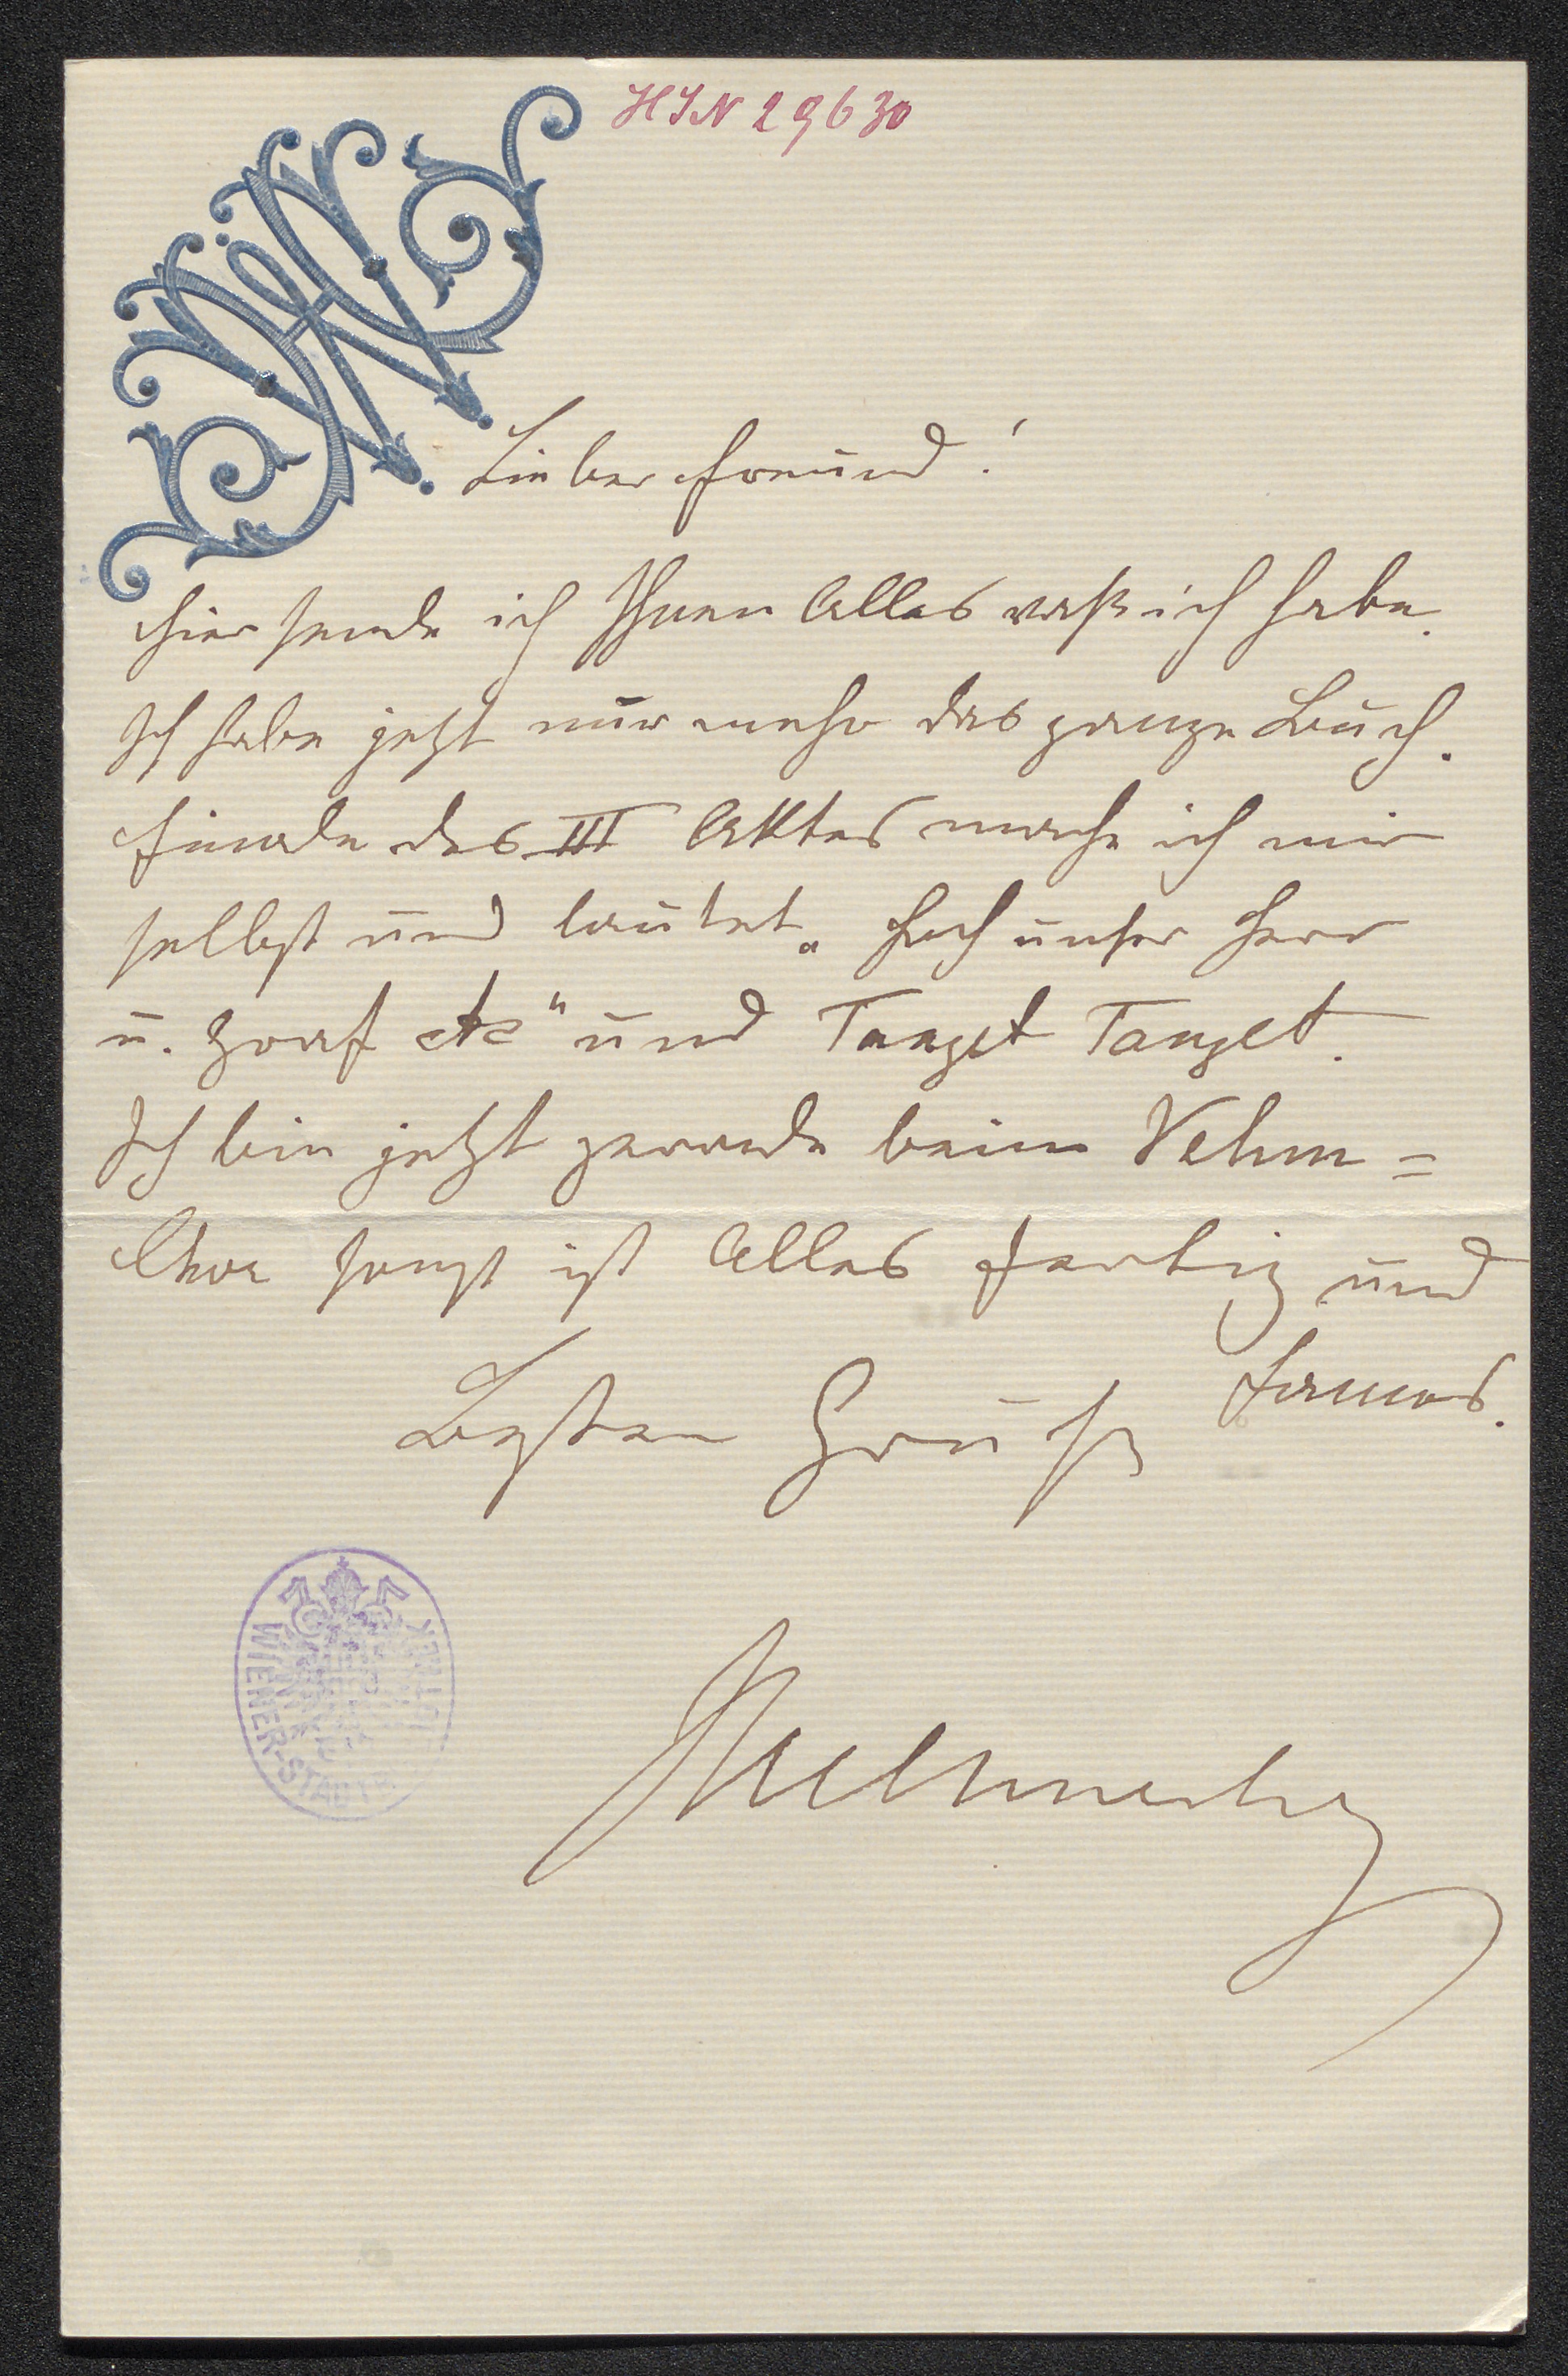 HIN 29630
Lieber Freund!
Hier sende ich Ihnen Alles waß ich habe.
Ich habe jetzt nur mehr das ganze Buch.
Finale des III Aktes mache ich mir
selbst und lautet „Hoch unser Herr
u. Graf etc" und Tanzet Tanzet.
Ich bin jetzt gerade beim Vehm=
Chor sonst ist Alles fertig und
famos.
Besten Gruß
WIENER-STADT